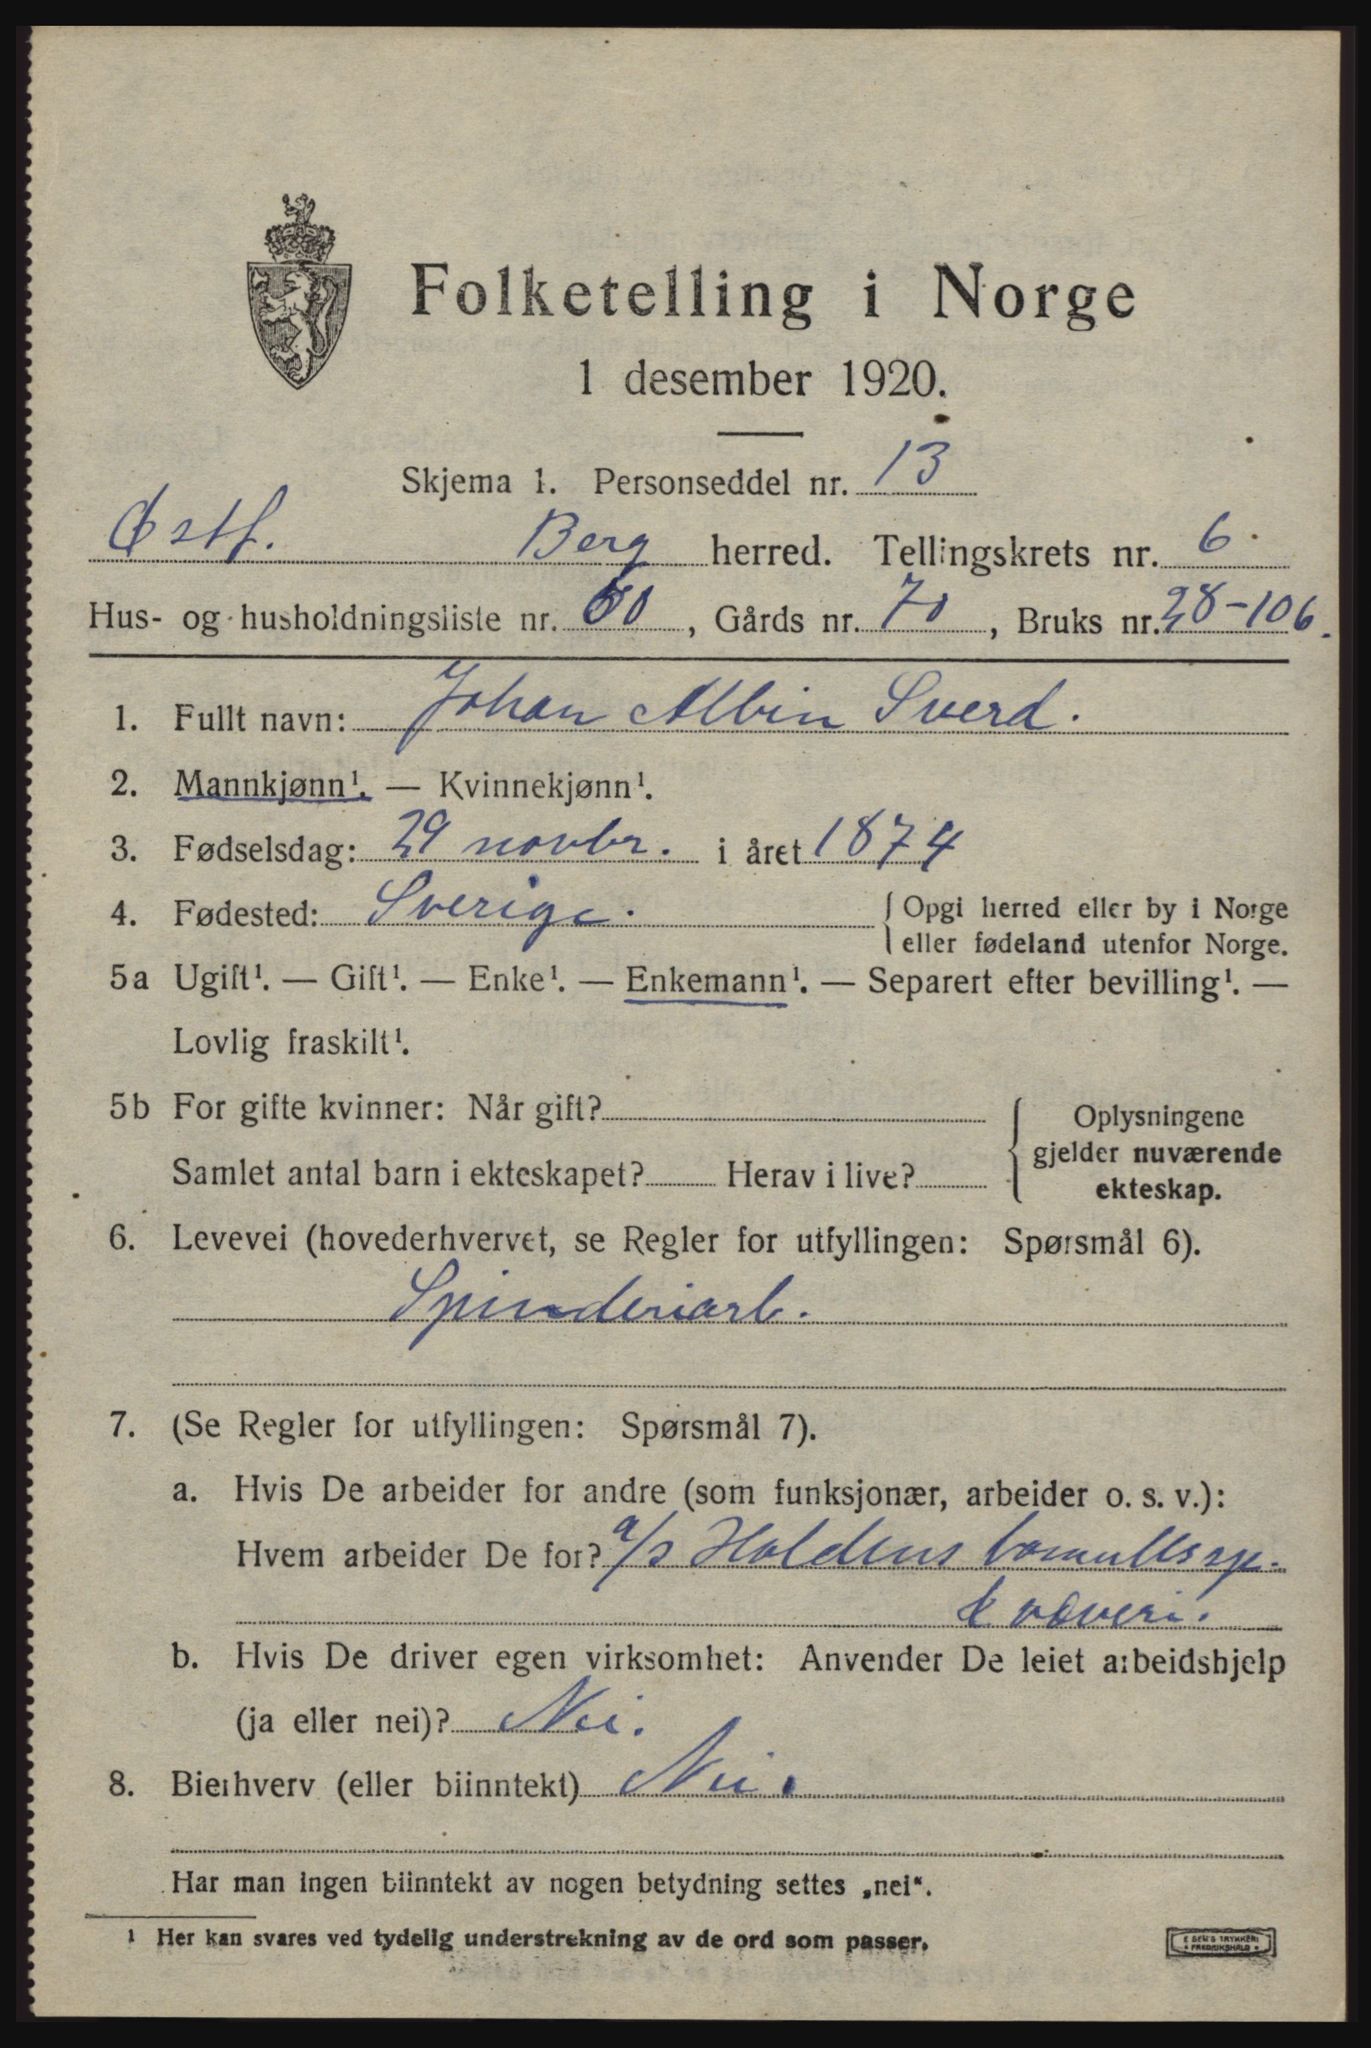 Folketelling i Norge
1 desember 1920.
Skjema 1. Personseddel nr. 13
Østf. Berg herred. Tellingskrets nr. 6
Hus- og husholdningsliste nr. , Gårds nr. 70, Bruks nr. 28-106.
1. Fullt navn: Johan Albin Sverd.
2. Mannkjønn¹. — Kvinnekjønn¹.
3. Fødselsdag: 29 novbr. i året 1874
4. Fødested: Sverige. { Opgi herred eller by i Norge
eller fødeland utenfor Norge.
5a Ugift¹. — Gift¹. — Enke¹. — Enkemann¹. — Separert efter bevilling¹. —
Lovlig fraskilt¹.
5b For gifte kvinner: Når gift? { Oplysningene
gjelder nuværende
Samlet antal barn i ekteskapet? Herav i live?
ekteskap.
6. Levevei (hovederhvervet, se Regler for utfyllingen: Spørsmål 6).
Spinderiarb.
7. (Se Regler for utfyllingen: Spørsmål 7).
a. Hvis De arbeider for andre (som funksjonær, arbeider o. s. v.):
Hvem arbeider De for? a/s Haldens bomullssp.
& væveri.
b. Hvis De driver egen virksomhet: Anvender De leiet arbeidshjelp
(ja eller nei)? Nei.
8. Bierhverv (eller biinntekt) Nei.
Har man ingen biinntekt av nogen betydning settes „nei".
¹ Her kan svares ved tydelig understrekning av de ord som passer.
E SEM'S TRYKKERI
FREDRIKSHALD